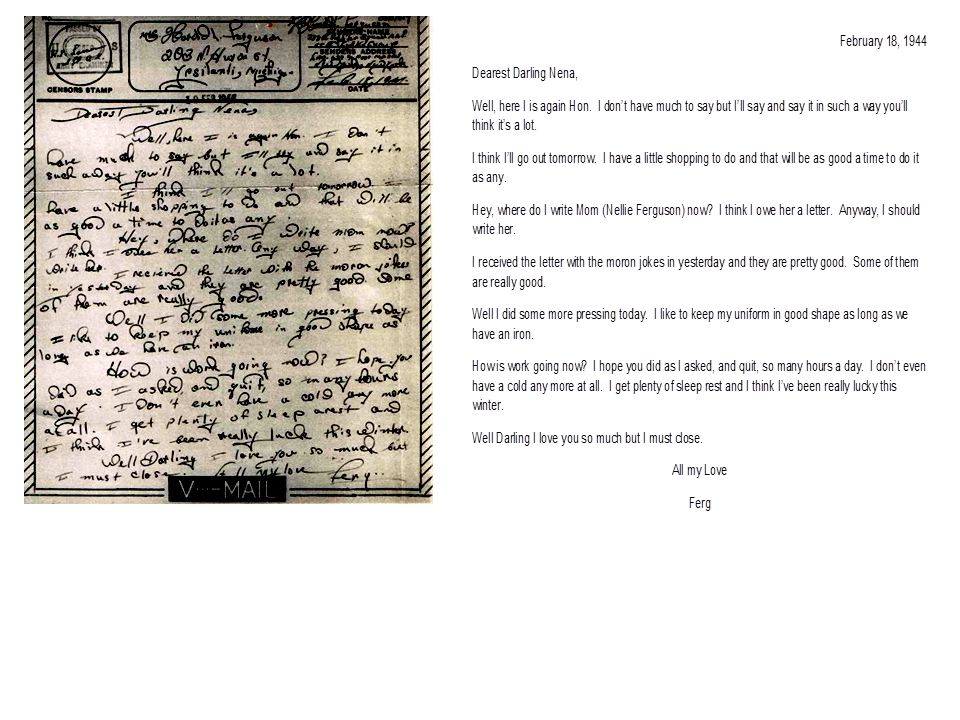 PASSED BY
CENSORS STAMP
Mrs Howard L. Ferguson
203 N. Huron St.
Ypsilanti, Michigan.
SENDER'S NAME
SENDERS ADDRESS
DATE
Dearest Darling Nena,
Well, here I is again Hon. I don't
have much to say but I'll say and say it in
such a way you'll think it's a lot.
I think I'll go out tomorrow. I
have a little shopping to do and that will be
as good a time to do it as any.
Hey, where do I write mom now?
I think I owe her a letter. Any way, I should
write her. I received the letter with the moron jokes
in yesterday and they are pretty good. Some
of them are really good.
Well I did some more pressing today
I like to keep my uniform in good shape as
long as we have an iron.
How is work going now? I hope you
did as I asked and quit, so many hours
a day. I don't even have a cold any more
at all. I get plenty of sleep a rest and
I think I've been really luck this winter
Well Darling I love you so much but
I must close. All my love
Ferg..
V···-MAIL
February 18, 1944
Dearest Darling Nena,
Well, here I is again Hon. I don't have much to say but I'll say and say it in such a way you'll
think it's a lot.
I think I'll go out tomorrow. I have a little shopping to do and that will be as good a time to do it
as any.
Hey, where do I write Mom (Nellie Ferguson) now? I think I owe her a letter. Anyway, I should
write her.
I received the letter with the moron jokes in yesterday and they are pretty good. Some of them
are really good.
Well I did some more pressing today. I like to keep my uniform in good shape as long as we
have an iron.
How is work going now? I hope you did as I asked, and quit, so many hours a day. I don't even
have a cold any more at all. I get plenty of sleep rest and I think I've been really lucky this
winter.
Well Darling I love you so much but I must close.
All my Love
Ferg